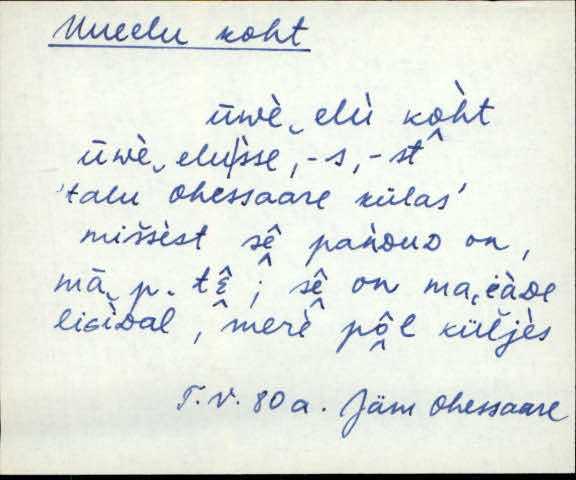 Uueelu koht
ūwè͜ elù kò̭ht
ūwè͜ eluìsse, -s, -st
'talu Ohessaare külas'
miššèst sḙ̂ pàǹᴅuᴅ on,
mā͜ p. tḙ̂; sḙ̂ on ma͜ càᴅe
liɢìᴅal, merḙ̂ pô̭l küĺjès
T.V. 80 a. Jäm Ohessaare